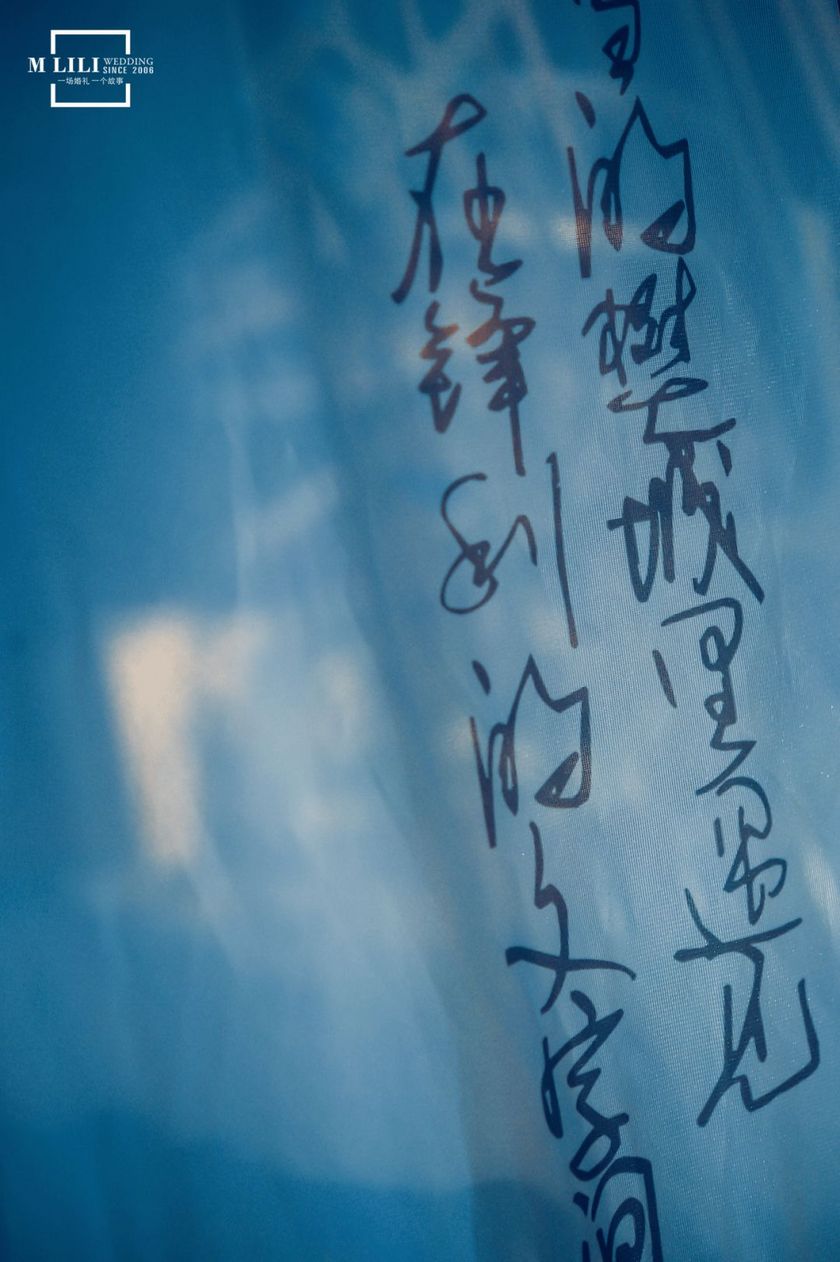 M LILI WEDDING
SINCE 2006
一场婚礼 一个故事
的樊城里遇见
在锋利的文字间